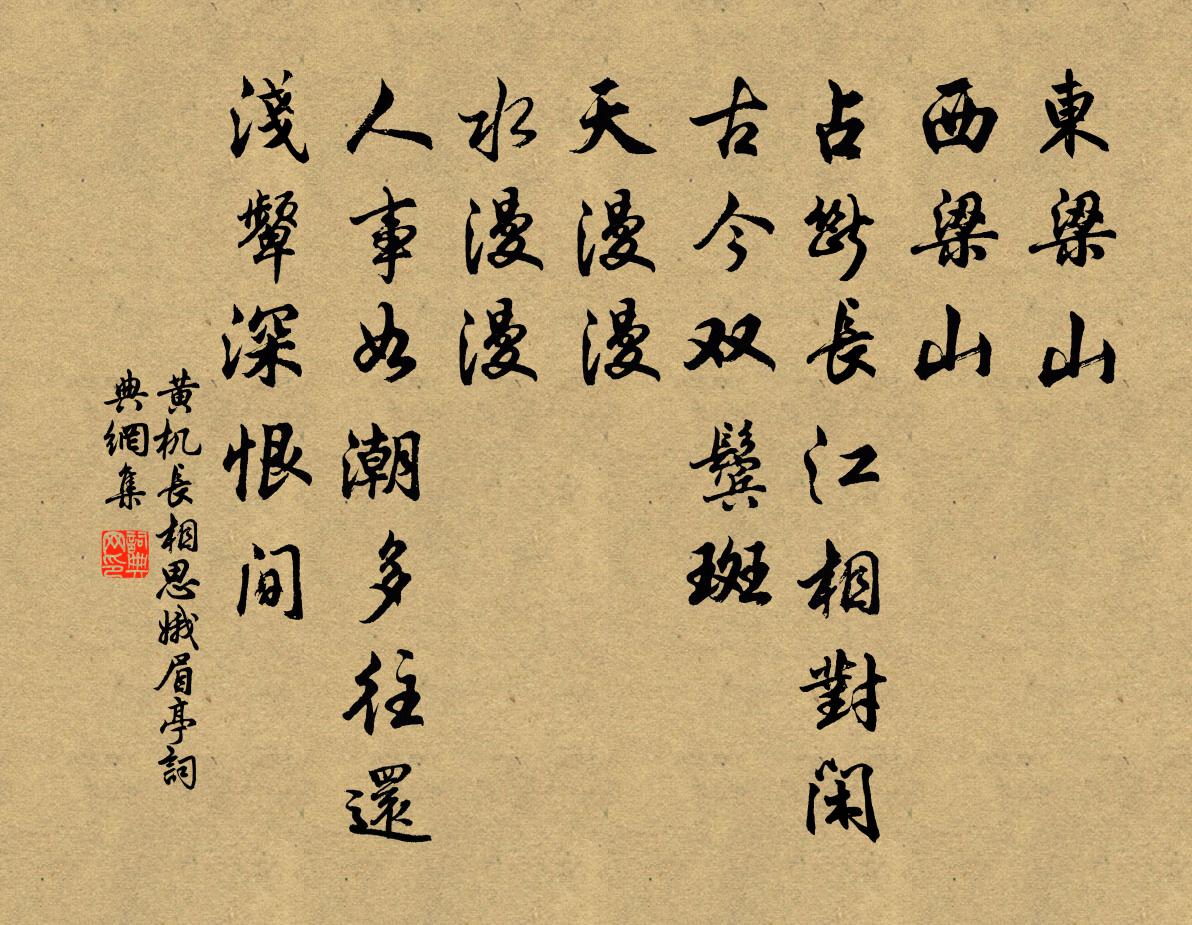 東梁山
西梁山
占斷長江相對閑
古今双鬓斑
天漫漫
水漫漫
人事如潮多往還
淺顰深恨间
黄机長相思娥眉亭詞
典網集
詞典
网印